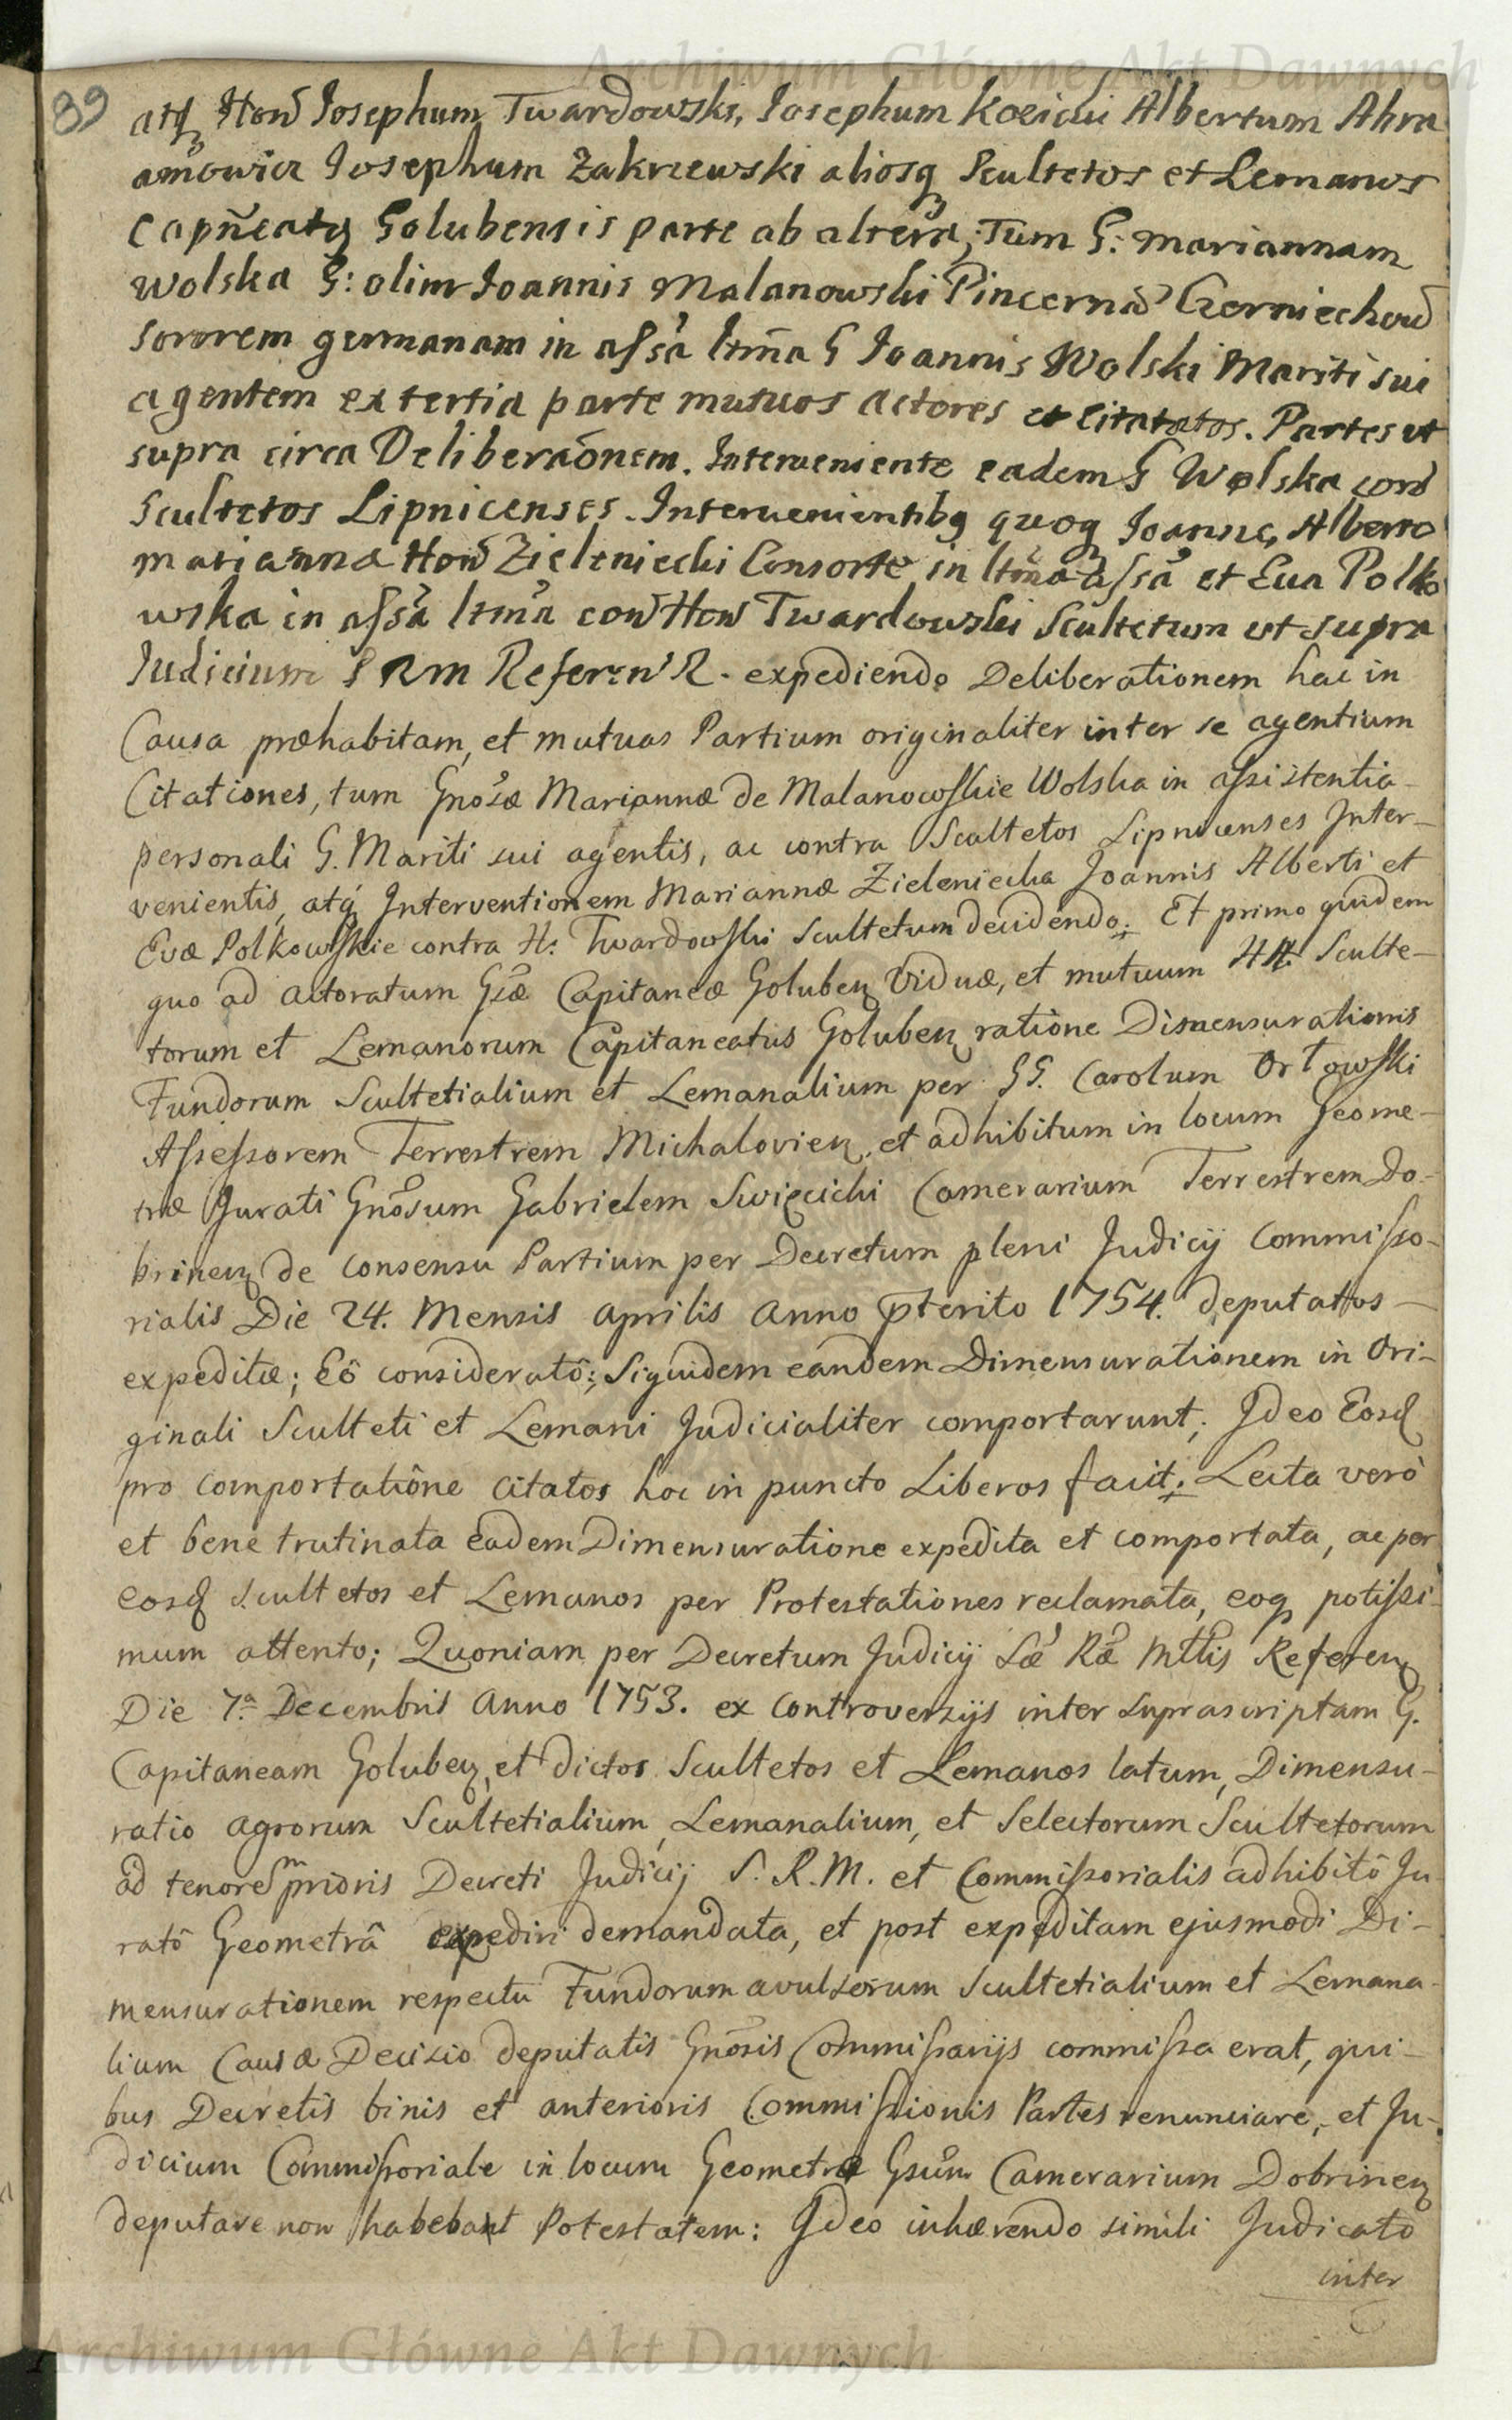 Archiwum Główne Akt Dawnych
89
atq Hon Josephum Twardowski, Josephum Kozicki Albertum Abra
amowicz Josephum Zakrzewski aliosq Scultetos et Lemanos
Capñeatq Golubensis parte ab altera; Tum G: Mariannam
Wolska G: olim Joannis Malanowski Pincerna Czerniechow
sororem germanam in assa ltma G Joannis Wolski Mariti sui
agentem ex tertia parte mutuos Actores et Citatos. Partes ut
supra circa Deliberaonem. Interveniente eadem G Wolska con
Scultetos Lipnicenses. Intervenientibq quoq Joanne, Alberto
Marianna Hon Zieleniecki Consorte in ltma assa et Eva Polko
wska in assa ltma con Hon Twardowski Scultetum ut supra
Judicium S R M Referen R. expediendo Deliberationem hac in
Causa præhabitam, et mutuas Partium originaliter inter se agentium
Citationes, tum Gnosæ Mariannæ de Malanowskie Wolska in assistentia
personali G. Mariti sui agentis, ac contra Scultetos Lipnicenses Inter-
venientis, atq Interventionem Mariannæ Zieleniecka Joannis Alberti et
Evæ Polkowskie contra H: Twardowski Scultetum decidendo; Et primo quidem
quo ad Actoratum Gsæ Capitaneæ Goluben Viduæ, et mutuum HH. Sculte-
torum et Lemanorum Capitaneatus Goluben ratione Dismensurationis
Fundorum Scultetialium et Lemanalium per GG. Carolum Orłowski
Assessorem Terrestrem Michalovien, et adhibitum in locum Geome-
træ Jurati Gnosum Gabrielem Swięcicki Camerarium Terrestrem Do-
brinen de consensu Partium per Decretum pleni Judicij Commisso-
rialis Die 24. Mensis Aprilis Anno pterito 1754. deputatos
expeditæ; Eô consideratô; Siquidem eandem Dimensurationem in Ori-
ginali Sculteti et Lemani Judicialiter comportarunt; Ideo Eosd
pro comportatiône Citatos hoc in puncto Liberos facit; Lecta verò
et bene trutinata eadem Dimensuratione expedita et comportata, ac per
eosd Scultetos et Lemanos per Protestationes reclamata, eoq potissi-
mum attento; Quoniam per Decretum Judicij Sæ Ræ Mttis Referen
Die 7.a Decembris Anno 1753. ex Controversijs inter suprascriptam G.
Capitaneam Goluben, et dictos Scultetos et Lemanos latum, Dimensu-
ratio Agrorum Scultetialium, Lemanalium, et Selectorum Scultetorum
ad tenorem prioris Decreti Judicij S. R. M. et Commissorialis adhibitô Ju-
ratô Geometrâ expediri demandata, et post expeditam ejusmodi Di-
mensurationem respectu Fundorum avulsorum Scultetialium et Lemana-
lium Causæ Decisio deputatis Gnosis Commissarijs commissa erat, qui-
bus Decretis binis et anterioris Commissionis Partes renunciare, et Ju-
dicium Commissoriale in locum Geometræ Gsum Camerarium Dobrinen
deputare non habebant Potestatem: Ideo inhærendo simili Judicato
inter
Archiwum Główne Akt Dawnych